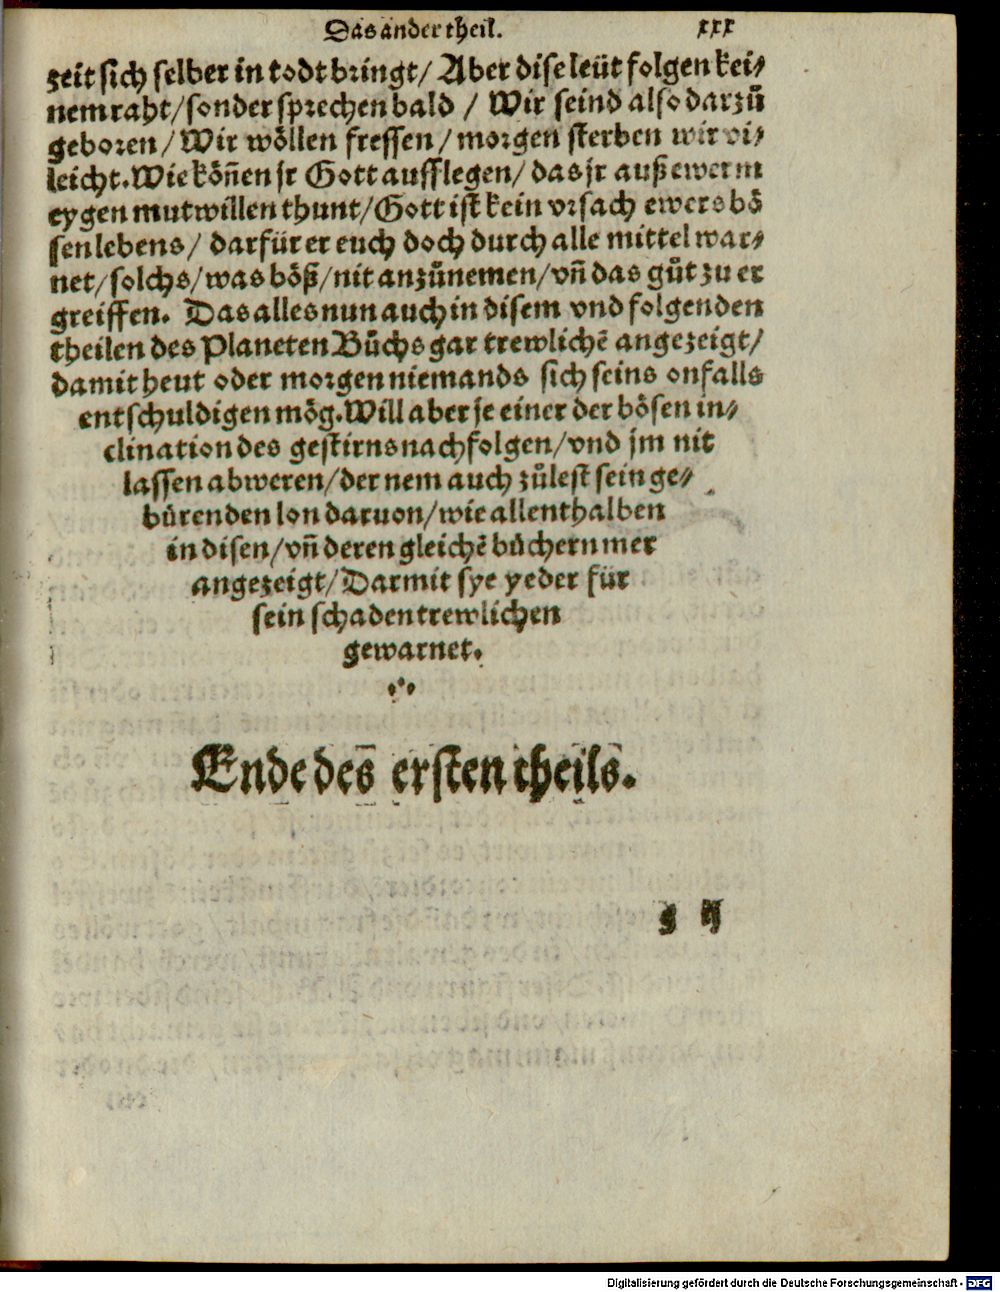 Das ander theil. xxx
zeit sich selber in todt bringt/ Aber dise leüt folgen kei⸗
nem raht/sonder sprechen bald / Wir seind also darzů
geboren/Wir wöllen fressen/morgen sterben wir vi⸗
leicht. Wie köñen jr Gott aufflegen/ das jr auß ewerm
eygen mutwillen thunt/Gott ist kein vrsach ewers bö
sen lebens/ darfür er euch doch durch alle mittel war⸗
net/solchs/was böß/nit anzůnemen/vñ das gůt zu er
greiffen. Das alles nun auch in disem vnd folgenden
theilen des Planeten Bůchs gar trewlichē angezeigt/
damit heut oder morgen niemands sich seins onfalls
entschuldigen mög. Will aber je einer der bösen in⸗
clination des gestirns nachfolgen/vnd jm nit
lassen abweren/der nem auch zůlest sein ge⸗
bürenden lon daruon/wie allenthalben
in disen/vñ deren gleichē bůchern mer
angezeigt/Darmit sye yeder für
sein schaden trewlichen
gewarnet.
Ende des ersten theils.
g ij
Digitalisierung gefördert durch die Deutsche Forschungsgemeinschaft - DFG